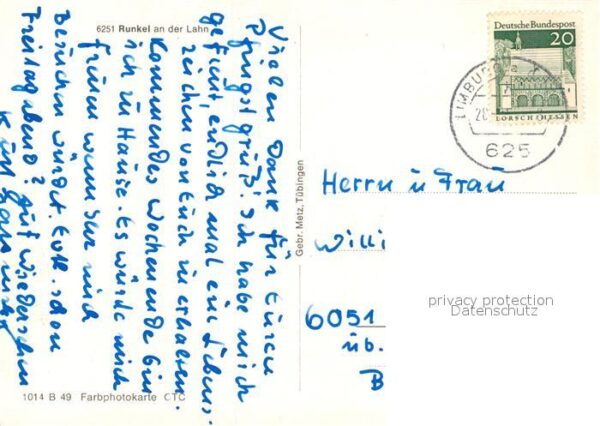 6251 Runkel an der Lahn
Vielen Dank für Euren
Pfingstgruß! Ich habe mich
gefreut, endlich mal ein Lebens-
zeichen von Euch zu erhalten.
Kommendes Wochenende bin
ich zu Hause. Es würde mich
freuen wenn Ihr mich
besuchen würdet. Evtl. schon
Freitagabend? Auf Wiedersehen
Gebr. Metz, Tübingen
Deutsche Bundespost
20
LORSCH/HESSEN
LIMBURG
625
Herrn u Frau
Willi
6051
üb.
B
privacy protection
Datenschutz
1014 B 49 Farbphotokarte CTC